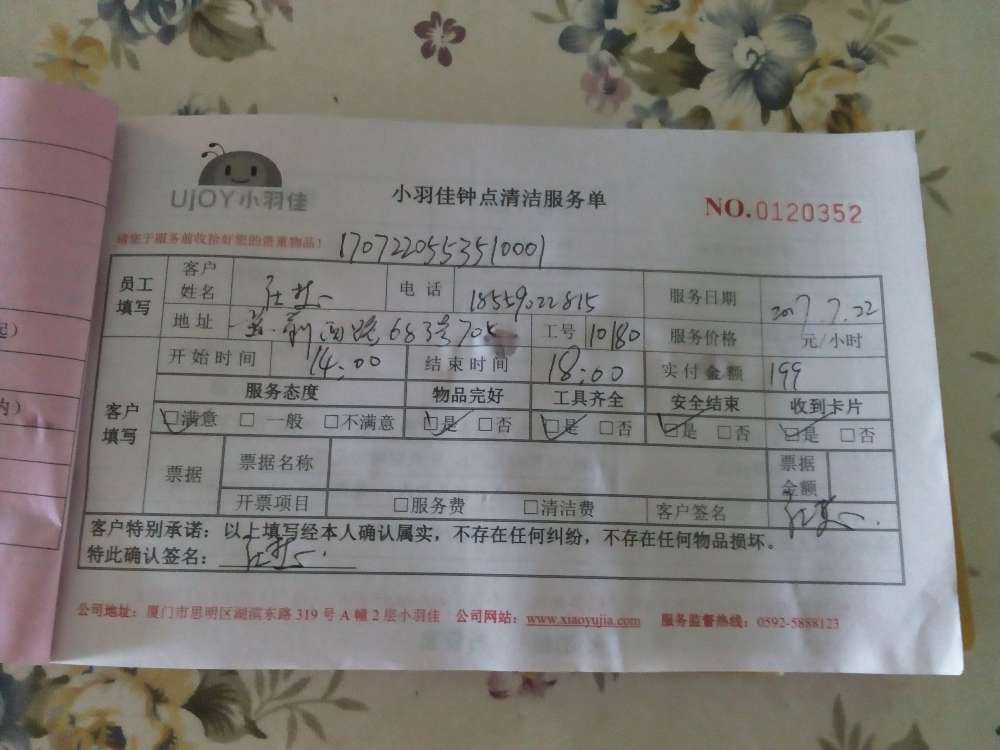 UjOY小羽佳
小羽佳钟点清洁服务单
NO.0120352
请您于服务前收拾好您的贵重物品！
1707220553510001
员工填写 客户姓名 电话 18559022815 服务日期 2017.7.22
地址 683号705 工号 10180 服务价格 元/小时
客户填写 开始时间 14:00 结束时间 18:00 实付金额 199
服务态度 物品完好 工具齐全 安全结束 收到卡片
□满意 □一般 □不满意 □是 □否 □是 □否 □是 □否 □是 □否
票据 票据名称 票据金额
开票项目 □服务费 □清洁费 客户签名
客户特别承诺：以上填写经本人确认属实，不存在任何纠纷，不存在任何物品损坏。
特此确认签名：
公司地址：厦门市思明区湖滨东路 319 号 A 幢 2 层小羽佳 公司网站：www.xiaoyujia.com 服务监督热线：0592-5888123
起）
内）